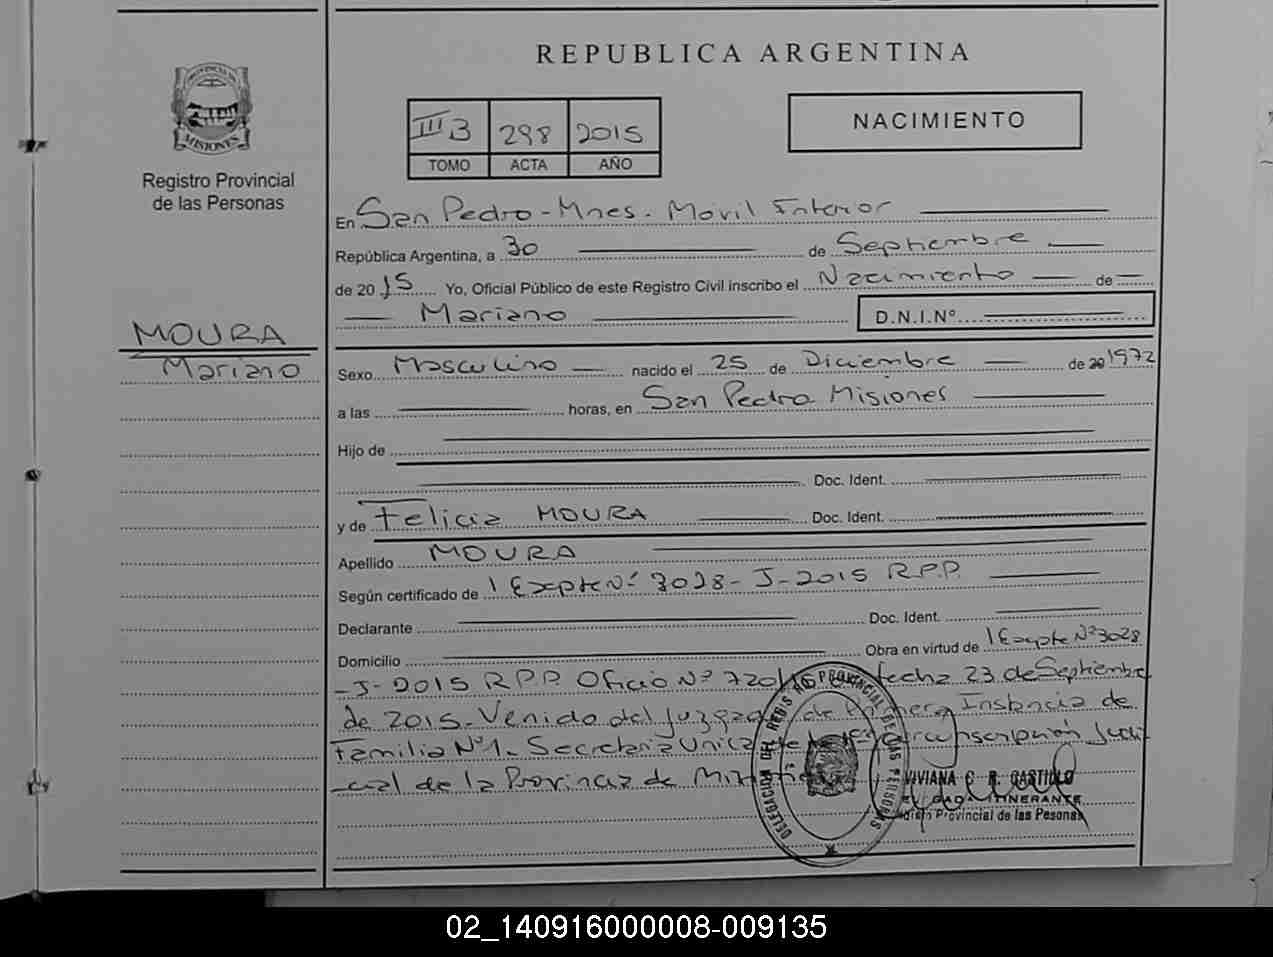 REPUBLICA ARGENTINA
PROVINCIA DE
MISIONES
Registro Provincial
de las Personas
III B 298 2015
TOMO ACTA AÑO
NACIMIENTO
En San Pedro - Mnes. Movil Interior
República Argentina, a 30 de Septiembre
de 2015 Yo, Oficial Público de este Registro Civil inscribo el Nacimiento de
Mariano D.N.I.Nº
MOURA
Mariano
Sexo Masculino nacido el 25 de Diciembre de 20 1972
a las horas, en San Pedro Misiones
Hijo de
Doc. Ident.
y de Felicia MOURA Doc. Ident.
Apellido MOURA
Según certificado de Expte Nº 3028 - J - 2015 R.P.P.
Declarante Doc. Ident.
Domicilio Obra en virtud de Expte Nº 3028
- J - 2015 R.P.P. Oficio Nº 720 fecha 23 de Septiembre
de 2015 - Venido del Juzgado de Primera Instancia de
Familia Nº 1 - Secretaria Unica de la Circunscripción Judi
cial de la Provincia de Misiones
DELEGACION DEL REGISTRO PROVINCIAL DE LAS PERSONAS
VIVIANA C. R. CASTILLO
ITINERANTE
Provincial de las Pesonas
02_140916000008-009135